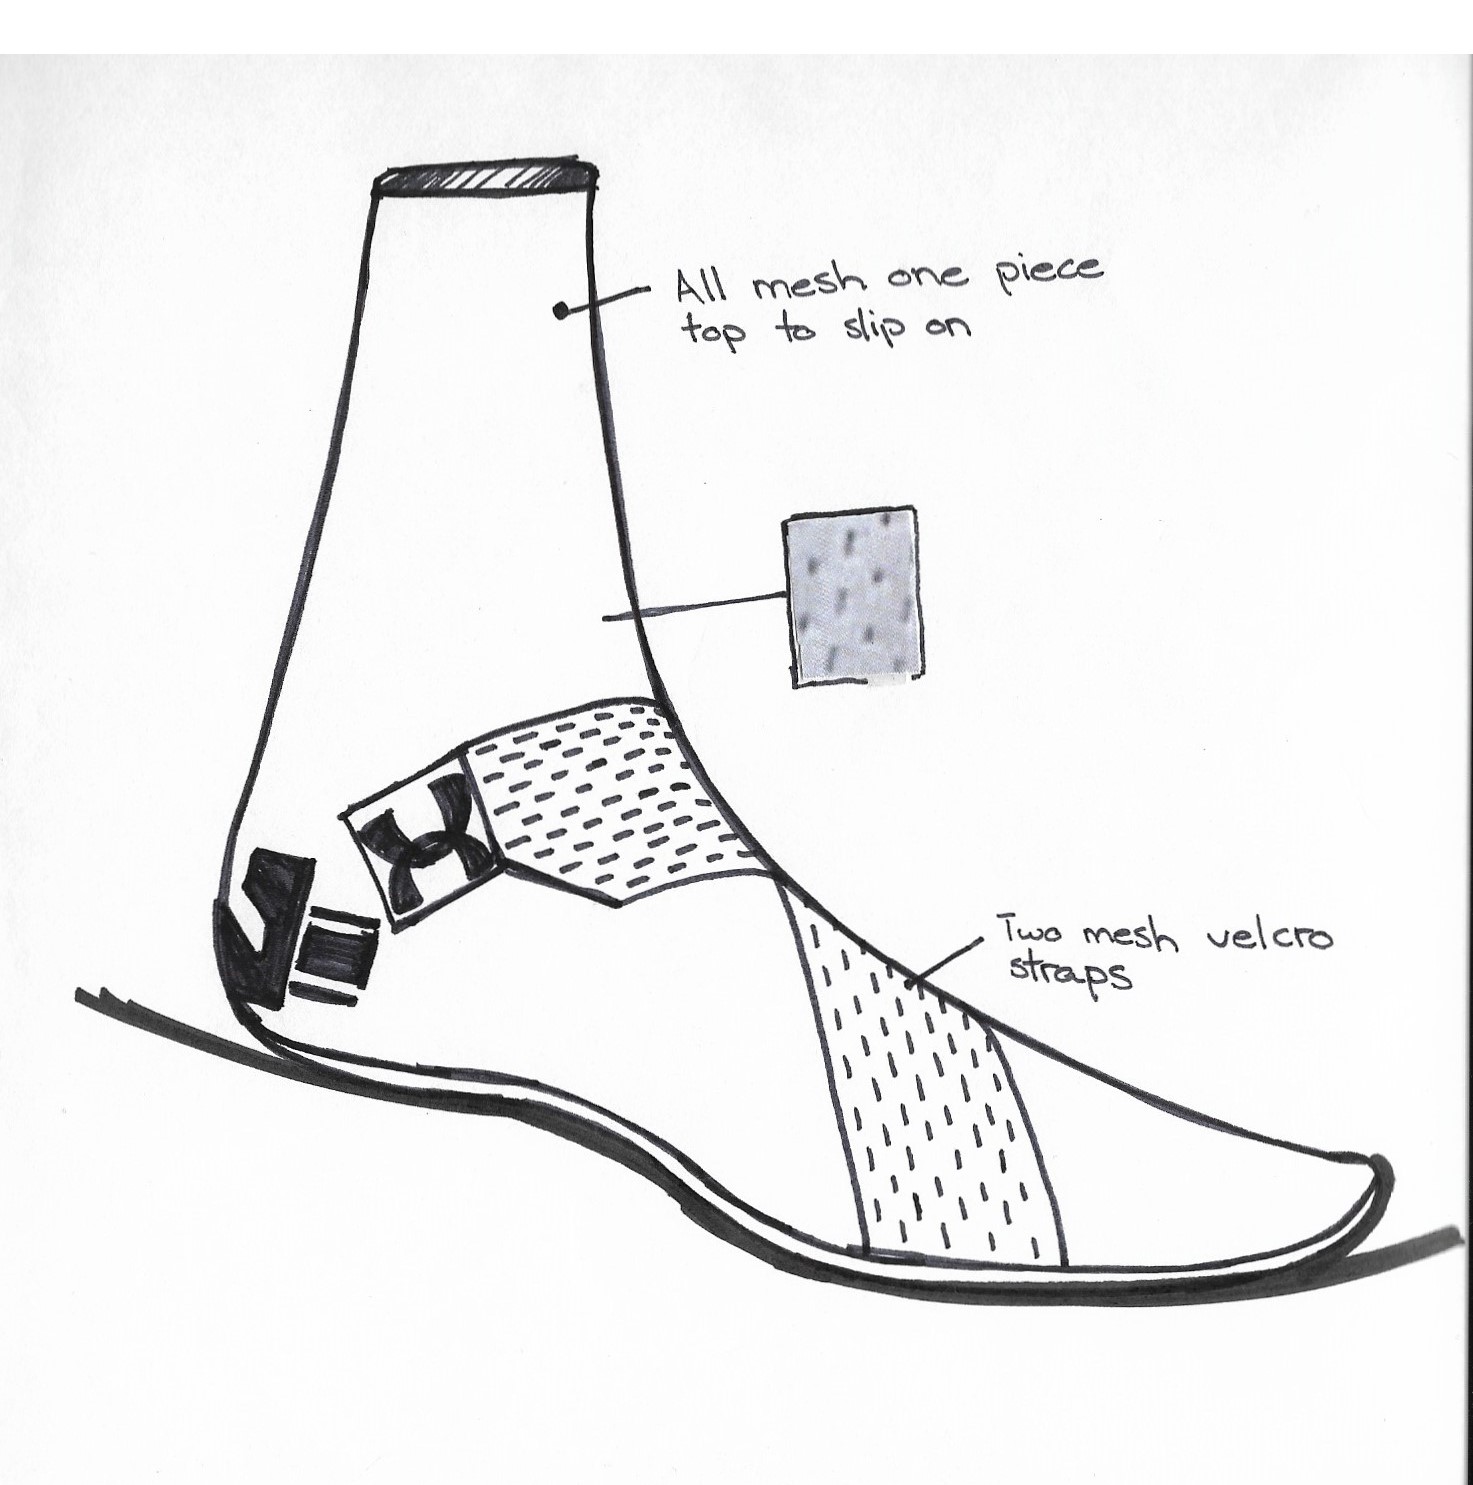 All mesh one piece
top to slip on
Two mesh velcro
straps